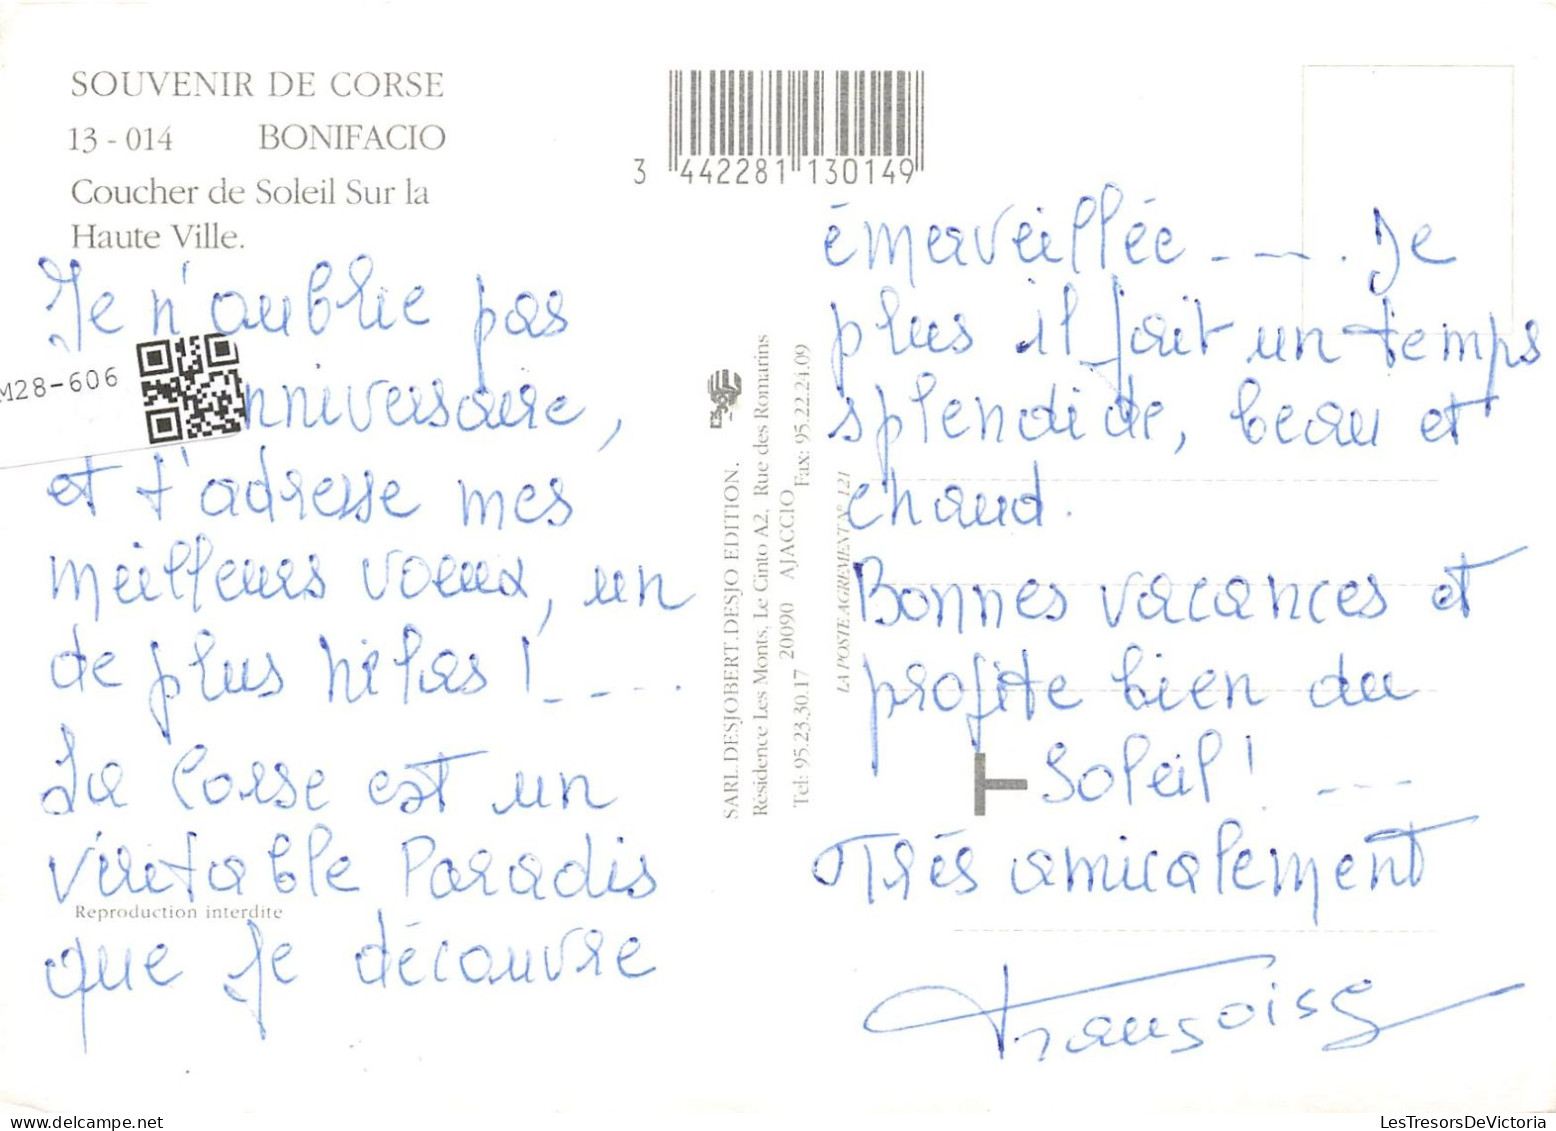 SOUVENIR DE CORSE
13 - 014 BONIFACIO
Coucher de Soleil Sur la
Haute Ville.
3 442281 130149
Je n'oublie pas
nniversaire,
M28-606
et t'adresse mes
meilleurs voeux, un
de plus hélas ! _ _ _ .
La Corse est un
véritable Paradis
Reproduction interdite
que je découvre
SARL.DESJOBERT.DESJO EDITION.
Résidence Les Monts, Le Cinto A2, Rue des Romarins
20090 AJACCIO
Tel: 95.23.30.17 Fax: 95.22.24.09
LA POSTE AGREMENT N° 121
émerveillée _ _ _ . De
plus il fait un temps
splendide, beau et
chaud.
Bonnes vacances et
profite bien du
Soleil ! _ _ _
Très amicalement
Françoise
LesTresorsDeVictoria